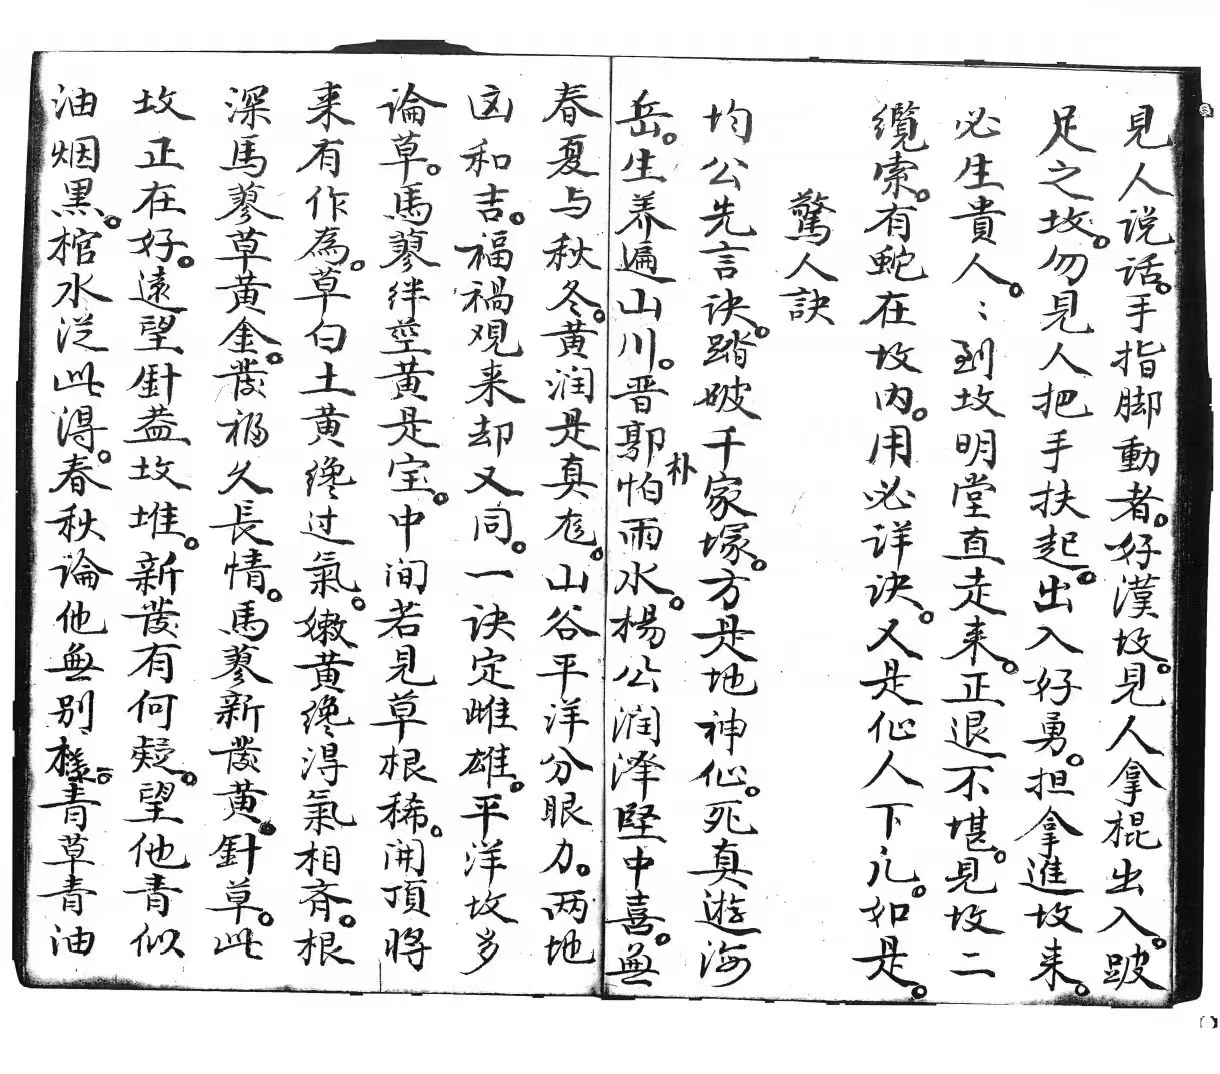 見人说话。手指脚動者。好漢坟。見人拿棍出入。跛
足之坟。勿見人把手扶起。出入好勇。担拿進坟来。
必生貴人。：到坟明堂直走来。正退不堪。見坟二
纜索。有蛇在坟内。用必详决。又是仙人下凡。如是。
驚人訣
均公先言诀。踏破千家塚。方是地神仙。死真遊海
岳。生养遍山川。晋郭朴怕雨水。楊公润泽堅中喜。無
春夏与秋冬。黄润是真尨。山谷平洋分眼力。两地
凶和吉。福禍观来却又同。一诀定雌雄。平洋坟多
论草。馬蓼绊莖黄是宝。中间若見草根稀。開頂将
来有作為。草白土黄纔过氣。嫩黄纔得氣相斉。根
深馬蓼草黄金。發福久長情。馬蓼新發黄。針草。此
坟正在好。遠望針葢坟堆。新發有何疑。望他青似
油烟黑。棺水泛此得。春秋论他無别樣。青草青油